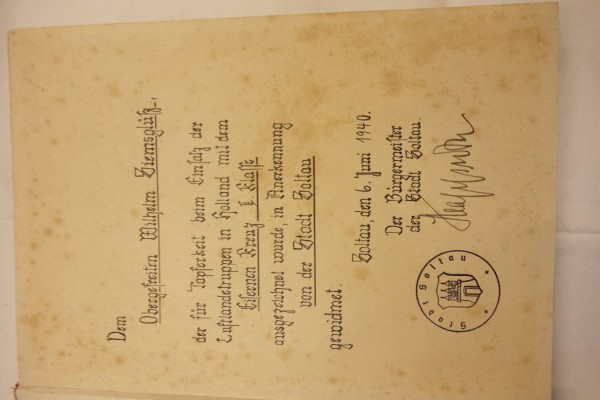 Dem
Obergefreiten Wilhelm Siemsglüß,
der für Tapferkeit beim Einsatz der
Luftlandetruppen in Holland mit dem
Eisernen Kreuz I. Klasse
ausgezeichnet wurde, in Anerkennung
von der Stadt Soltau
gewidmet.
Soltau, den 6. Juni 1940.
Der Bürgermeister
der Stadt Soltau.
Stadt Soltau